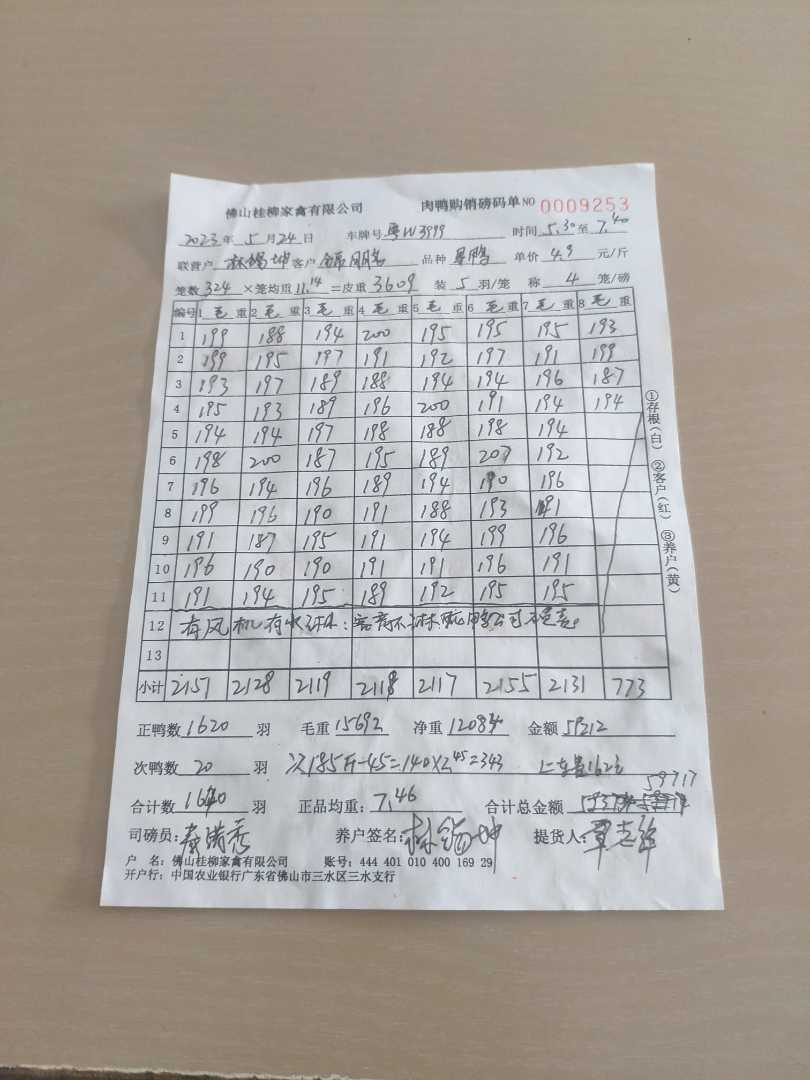 佛山桂柳家禽有限公司 肉鸭购销磅码单 NO 0009253
2023年 5月24日 车牌号 粤W3999 时间 5.30至 7.40
联营户 林锡坤 客户 品种 单价 4.9 元/斤
笼数 324 ×笼均重 11.14 =皮重 3609 装 5 羽/笼 称 4 笼/磅
编号 1 毛 重 2 毛 重 3 毛 重 4 毛 重 5 毛 重 6 毛 重 7 毛 重 8 毛 重
1 199 188 194 200 195 195 195 193
2 199 195 197 191 192 197 191 199
3 193 197 189 188 194 194 196 187
4 195 193 189 196 200 191 194 194
5 194 194 197 198 188 198 194
6 198 200 187 195 189 207 192
7 196 194 196 189 194 190 196
8 199 196 190 191 188 193 191
9 191 187 195 191 194 199 196
10 196 190 190 191 191 196 191
11 191 194 195 189 192 195 195
12 有风机有水
13
小计 2157 2128 2119 2118 2117 2155 2131 773
正鸭数 1620 羽 毛重 15692 净重 12084 金额 59212
次鸭数 20 羽 次185斤-45=140×2.45=343
59717
合计数 1640 羽 正品均重: 7.46 合计总金额
司磅员: 养户签名: 林锡坤 提货人:
户 名: 佛山桂柳家禽有限公司 账号: 444 401 010 400 169 29
开户行: 中国农业银行广东省佛山市三水区三水支行
①存根(白) ②客户(红) ③养户(黄)